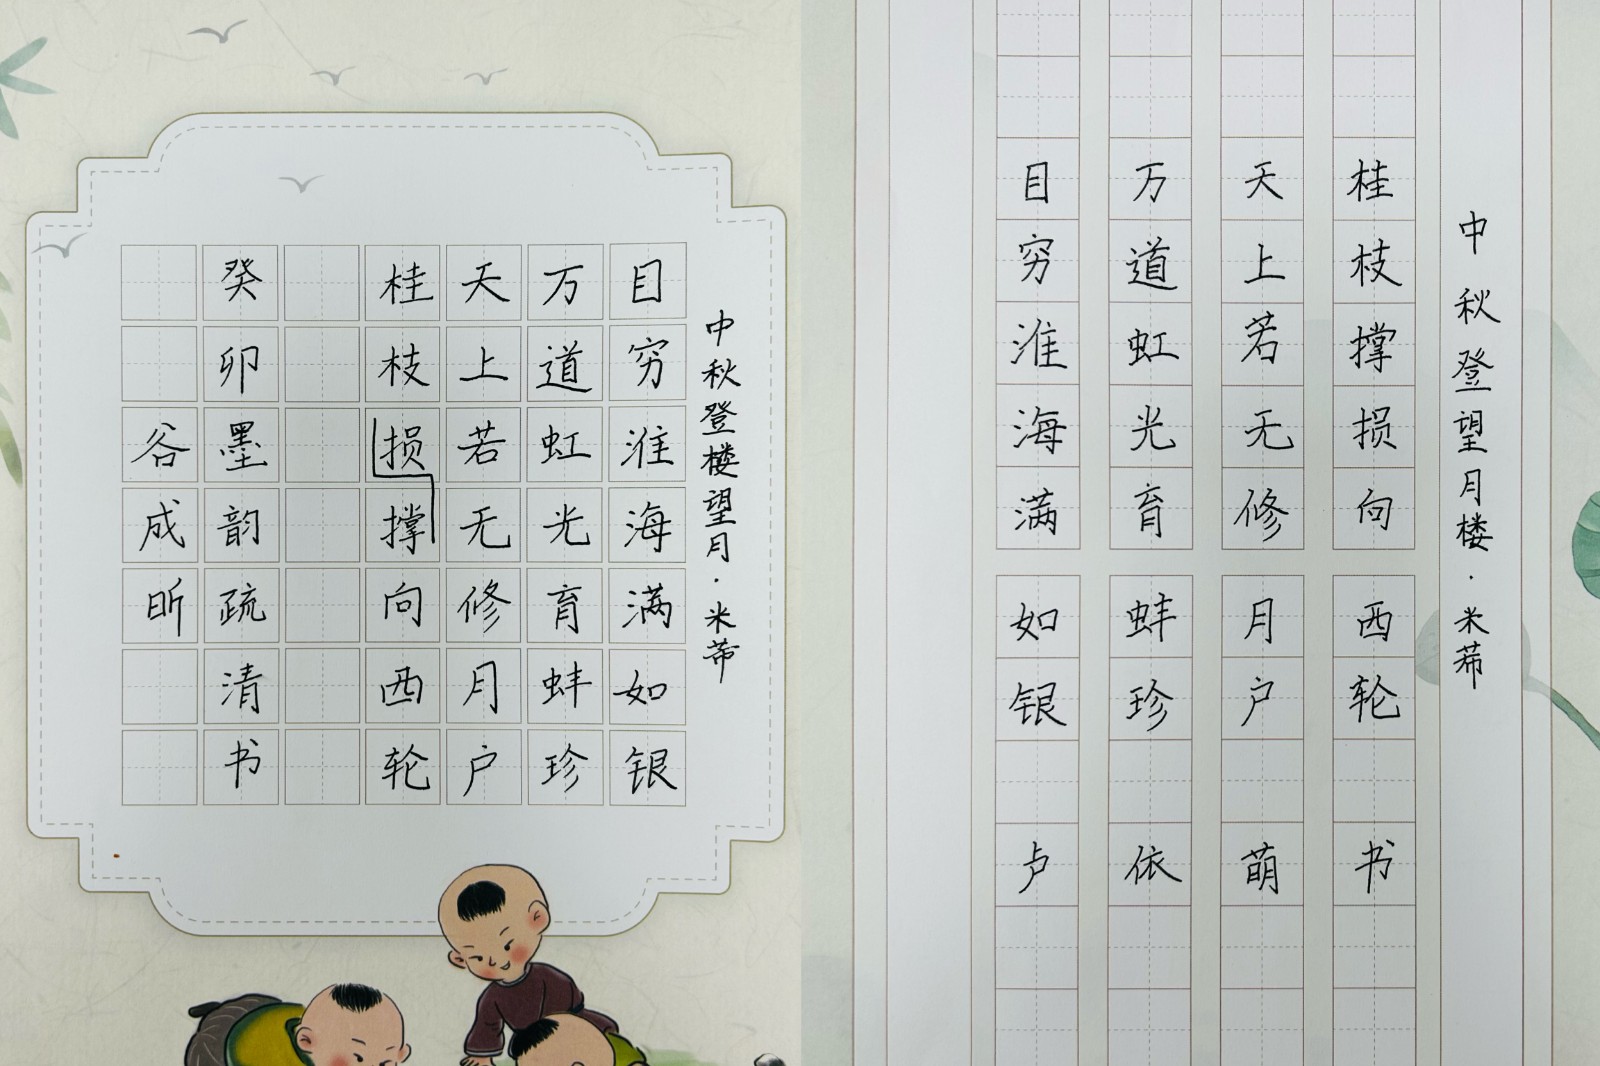 中秋登楼望月·米芾
目穷淮海满如银
万道虹光育蚌珍
天上若无修月户
桂枝损撑向西轮
癸卯墨韵疏清书
谷成昕
中秋登望月楼·米芾
目穷淮海满如银
万道虹光育蚌珍
天上若无修月户
桂枝撑损向西轮
卢依萌书